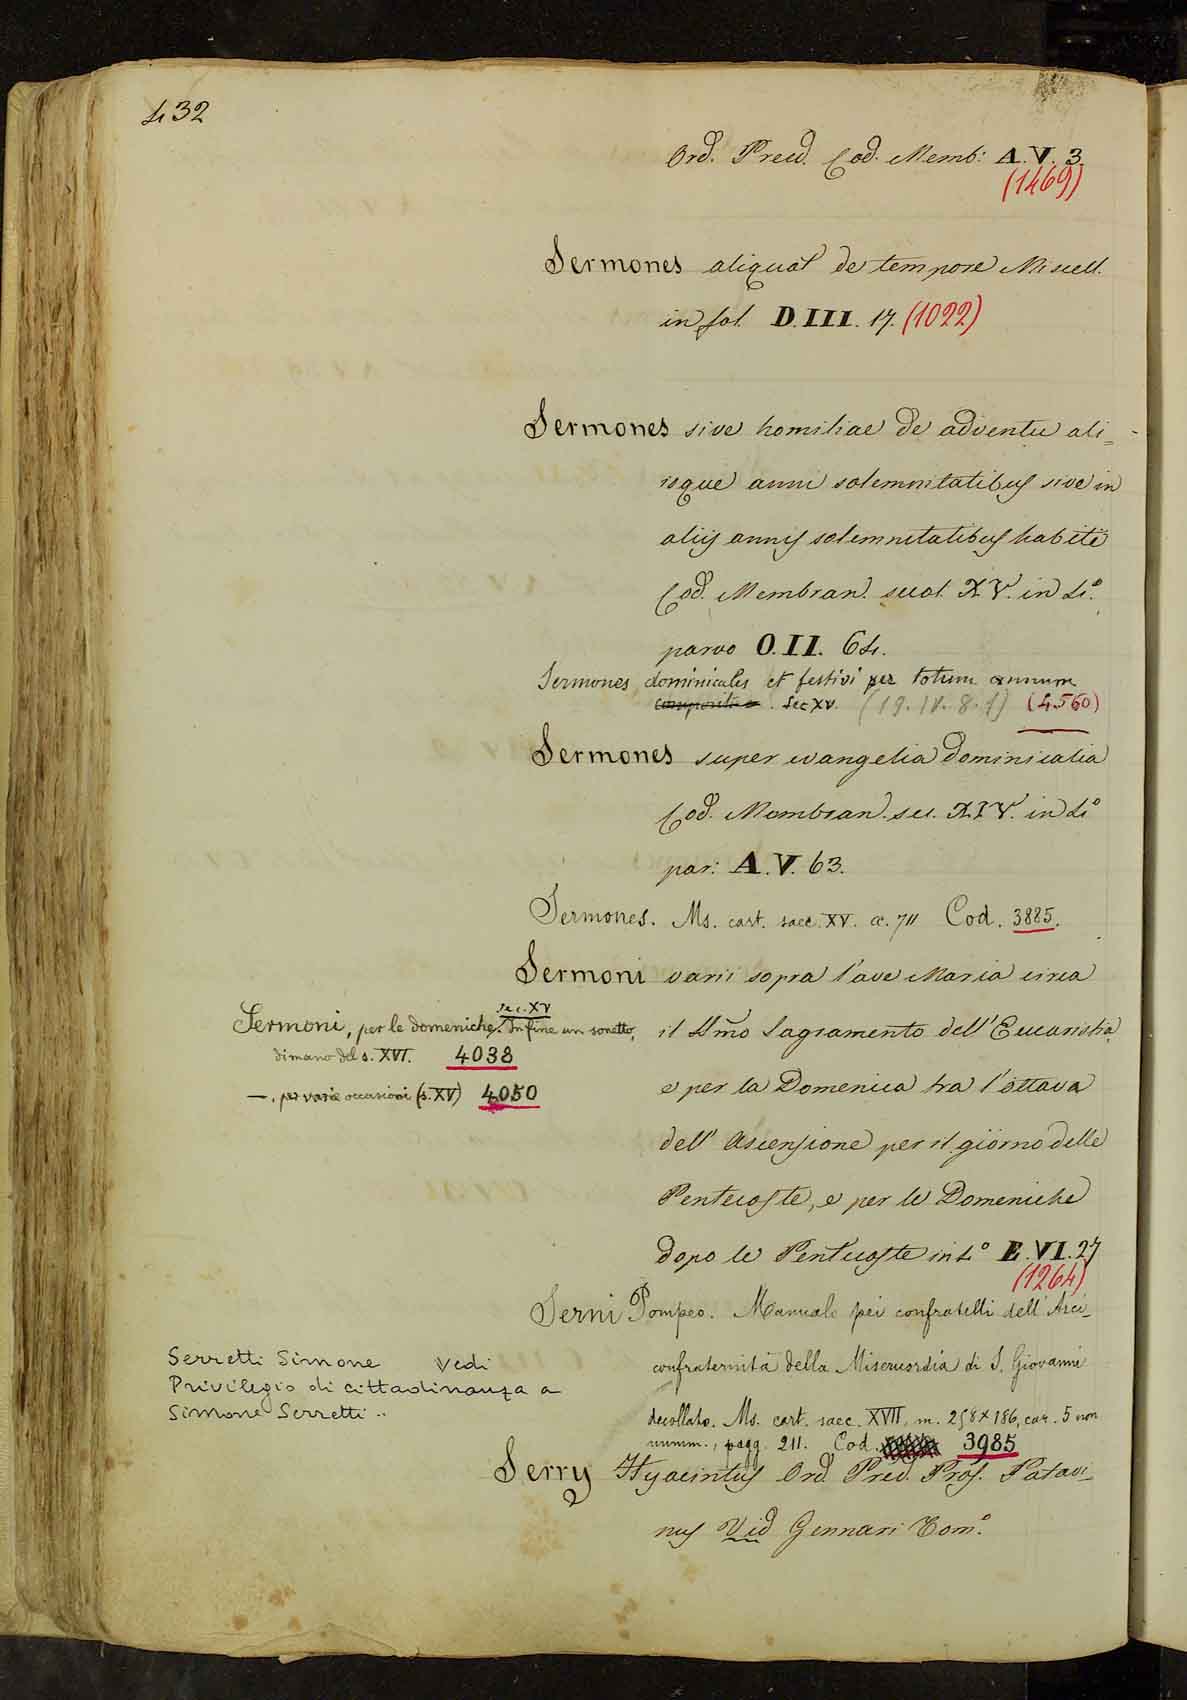 432
Ord. Pred. Cod. Memb: A.V. 3.
(1469)
Sermones aliquot de tempore Miscell.
in fol. D.III. 17. (1022)
Sermones sive homiliae de adventu ali=
isque anni solemnitatibus sive in
aliis annis solemnitatibus habiti
Cod. Membran. saec. XV. in 4.º
parvo O.II. 64.
Sermones dominicales et festivi per totum annum
. Sec XV. (19.IV.8.1) (4560)
Sermones super evangelia Dominicalia
Cod. Membran. sec. XIV. in 4º
par: A.V. 63.
Sermones. Ms. cart. saec. XV. cc. 711 Cod. 3885.
Sermoni varii sopra l'ave Maria circa
il SSmo Sagramento dell'Eucaristia,
e per la Domenica tra l'ottava
dell' Ascensione per il giorno delle
Pentecoste, e per le Domeniche
dopo le Pentecoste in 4º E.VI.27
(1264)
sec. XV
Sermoni, per le domeniche. In fine un sonetto,
di mano del s. XVI. 4038
—, per varie occasioni (s. XV) 4050
Serni Pompeo. Manuale pei confratelli dell'Arci-
confraternità della Misericordia di S. Giovanni
decollato. Ms. cart. saec. XVII, m. 258x186, car. 5 non
numm., pagg. 211. Cod. 3985
Serretti Simone vedi
Privilegio di cittadinanza a
Simone Serretti..
Serry Hyacintus Ord. Pred. Prof. Patavi-
nus Vid Gennari Tom.º